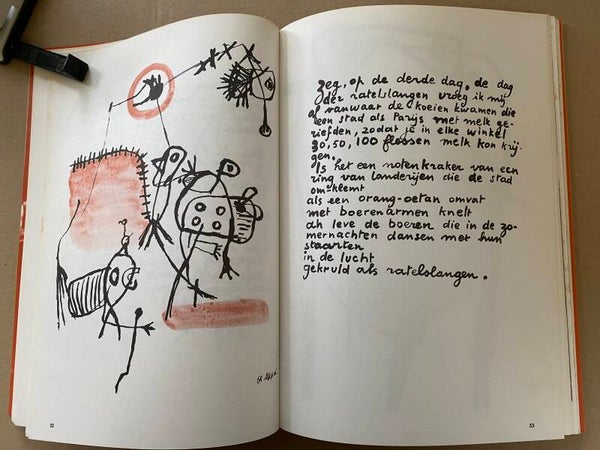 zeg, op de derde dag, de dag
der ratelslangen vroeg ik mij
af vanwaar de koeien kwamen die
een stad als Parijs met melk ge-
riefden, zodat je in elke winkel
30, 50, 100 flessen melk kon krij-
gen.
Is het een notenkraker van een
ring van landerijen die de stad
omklemt
als een orang-oetan omvat
met boerenarmen knelt
ah leve de boeren die in de zo-
mernachten dansen met hun
staarten
in de lucht
gekruld als ratelslangen.
32
33